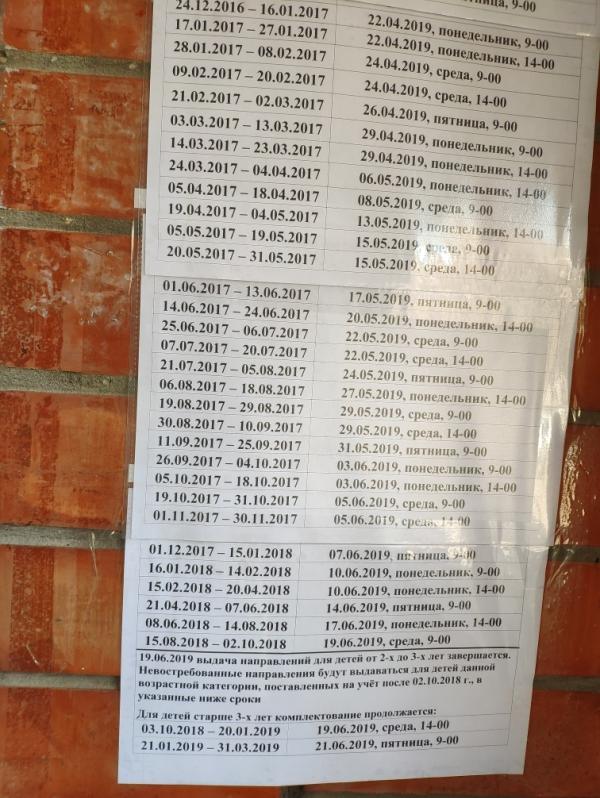 пятница, 9-00
24.12.2016 – 16.01.2017 22.04.2019, понедельник, 9-00
17.01.2017 – 27.01.2017 22.04.2019, понедельник, 14-00
28.01.2017 – 08.02.2017 24.04.2019, среда, 9-00
09.02.2017 – 20.02.2017 24.04.2019, среда, 14-00
21.02.2017 – 02.03.2017 26.04.2019, пятница, 9-00
03.03.2017 – 13.03.2017 29.04.2019, понедельник, 9-00
14.03.2017 – 23.03.2017 29.04.2019, понедельник, 14-00
24.03.2017 – 04.04.2017 06.05.2019, понедельник, 14-00
05.04.2017 – 18.04.2017 08.05.2019, среда, 9-00
19.04.2017 – 04.05.2017 13.05.2019, понедельник, 14-00
05.05.2017 – 19.05.2017 15.05.2019, среда, 9-00
20.05.2017 – 31.05.2017 15.05.2019, среда, 14-00
01.06.2017 – 13.06.2017 17.05.2019, пятница, 9-00
14.06.2017 – 24.06.2017 20.05.2019, понедельник, 14-00
25.06.2017 – 06.07.2017 22.05.2019, среда, 9-00
07.07.2017 – 20.07.2017 22.05.2019, среда, 14-00
21.07.2017 – 05.08.2017 24.05.2019, пятница, 9-00
06.08.2017 – 18.08.2017 27.05.2019, понедельник, 14-00
19.08.2017 – 29.08.2017 29.05.2019, среда, 9-00
30.08.2017 – 10.09.2017 29.05.2019, среда, 14-00
11.09.2017 – 25.09.2017 31.05.2019, пятница, 9-00
26.09.2017 – 04.10.2017 03.06.2019, понедельник, 9-00
05.10.2017 – 18.10.2017 03.06.2019, понедельник, 14-00
19.10.2017 – 31.10.2017 05.06.2019, среда, 9-00
01.11.2017 – 30.11.2017 05.06.2019, среда, 14-00
01.12.2017 – 15.01.2018 07.06.2019, пятница, 9-00
16.01.2018 – 14.02.2018 10.06.2019, понедельник, 9-00
15.02.2018 – 20.04.2018 10.06.2019, понедельник, 14-00
21.04.2018 – 07.06.2018 14.06.2019, пятница, 9-00
08.06.2018 – 14.08.2018 17.06.2019, понедельник, 14-00
15.08.2018 – 02.10.2018 19.06.2019, среда, 9-00
19.06.2019 выдача направлений для детей от 2-х до 3-х лет завершается.
Невостребованные направления будут выдаваться для детей данной
возрастной категории, поставленных на учёт после 02.10.2018 г., в
указанные ниже сроки
Для детей старше 3-х лет комплектование продолжается:
03.10.2018 – 20.01.2019 19.06.2019, среда, 14-00
21.01.2019 – 31.03.2019 21.06.2019, пятница, 9-00